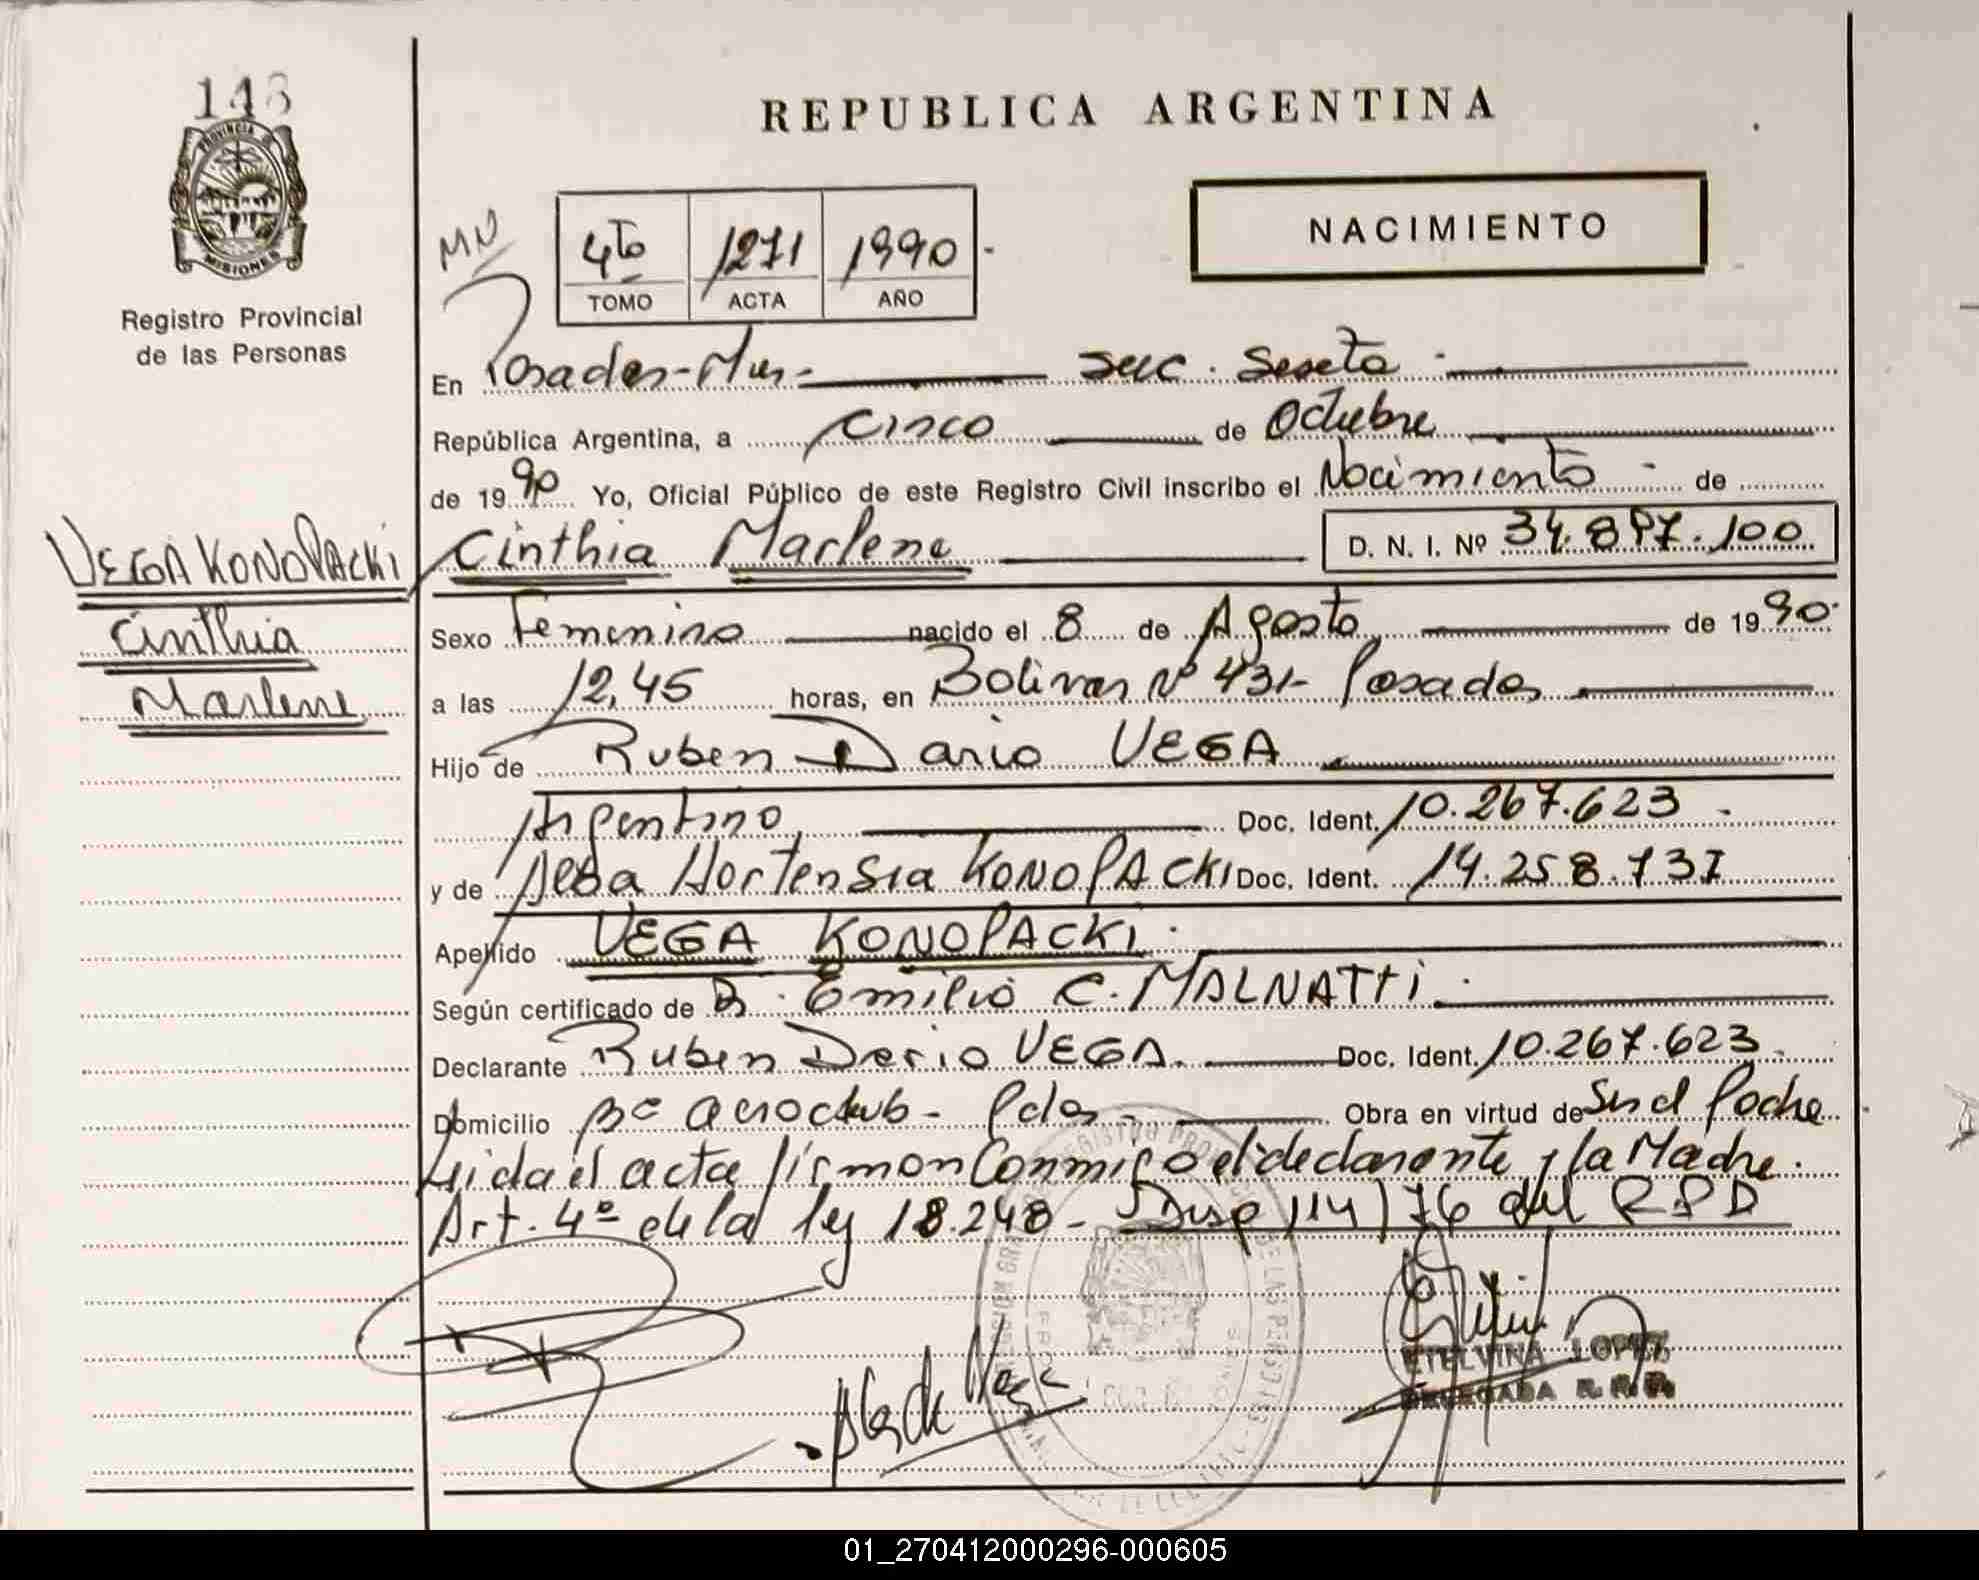 REPUBLICA ARGENTINA
PROVINCIA DE
MISIONES
Registro Provincial
de las Personas
NACIMIENTO
4to 1271 1990 -
TOMO ACTA AÑO
En Posadas-Mnes- Secc. Sexta -
República Argentina, a Cinco de Octubre
de 1990 Yo, Oficial Público de este Registro Civil inscribo el Nacimiento - de
Cinthia Marlene D. N. I. Nº 34.897.100
VEGA KONOPACKI
Cinthia
Marlene
Sexo Femenino nacido el 8 de Agosto de 1990.
a las 12,45 horas, en Bolivar Nº 431- Posadas
Hijo de Ruben Dario VEGA
Argentino Doc. Ident. 10.267.623 -
y de Hortensia KONOPACKI Doc. Ident. 14.258.737
Apellido VEGA KONOPACKI.
Según certificado de Dr. Emilio C. MALNATTI.
Declarante Ruben Dario VEGA. Doc. Ident. 10.267.623.
Domicilio Bº aeroclub - Pdas - Obra en virtud de Ser el Padre
Leida el acta firman Conmigo el declarante y la Madre.
Art. 4º de la ley 18.248 - Disp 114/76 del RPP
ETELVINA LOPEZ
DELEGADA R.P.P.
01_270412000296-000605